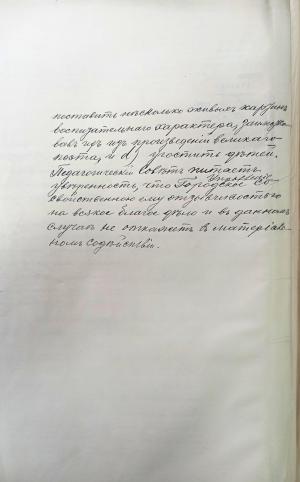 поставить нѣсколько живыхъ картинъ
воспитательнаго характера, заимство-
вавъ ихъ изъ произведеній великаго
поэта, и d) угостить дѣтей.
Педагогическій совѣтъ питаетъ
увѣренность, что Городское Управленіе со
свойственною ему отзывчивостью
на всякое благое дѣло и въ данномъ
случаѣ не откажетъ въ матеріаль-
номъ содѣйствіи.